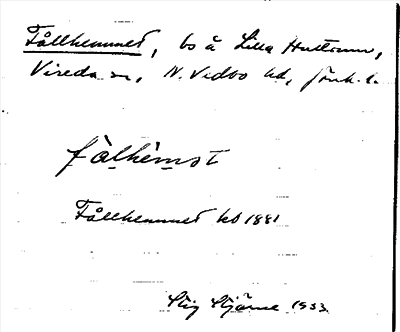 Fållhemmet, bs å Lilla Hultrum,
Vireda sn, N. Vedbo hd, Jönk. l.
fàlhèmst
Fållhemmet kb 1881
Stig Stjärne 1933